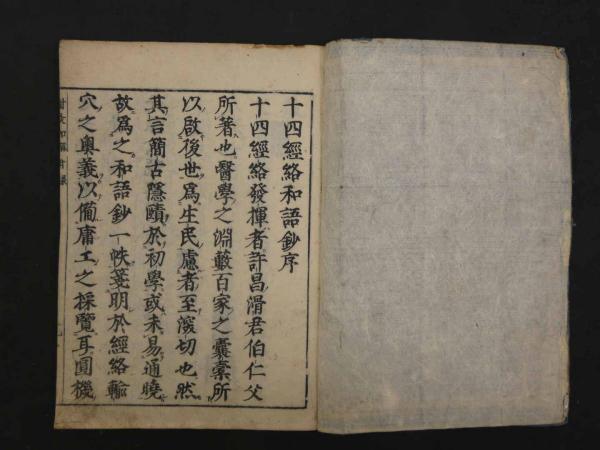 十四經絡和語鈔序
十四經絡發揮者許昌滑君伯仁父
所著也醫學之淵藪百家之囊橐所
以啟後世為生民慮者至深切也然
其言簡古隱賾於初學或未易通曉
故為之和語鈔一帙箋明於經絡輸
穴之奧義以備庸工之採覽耳圓機